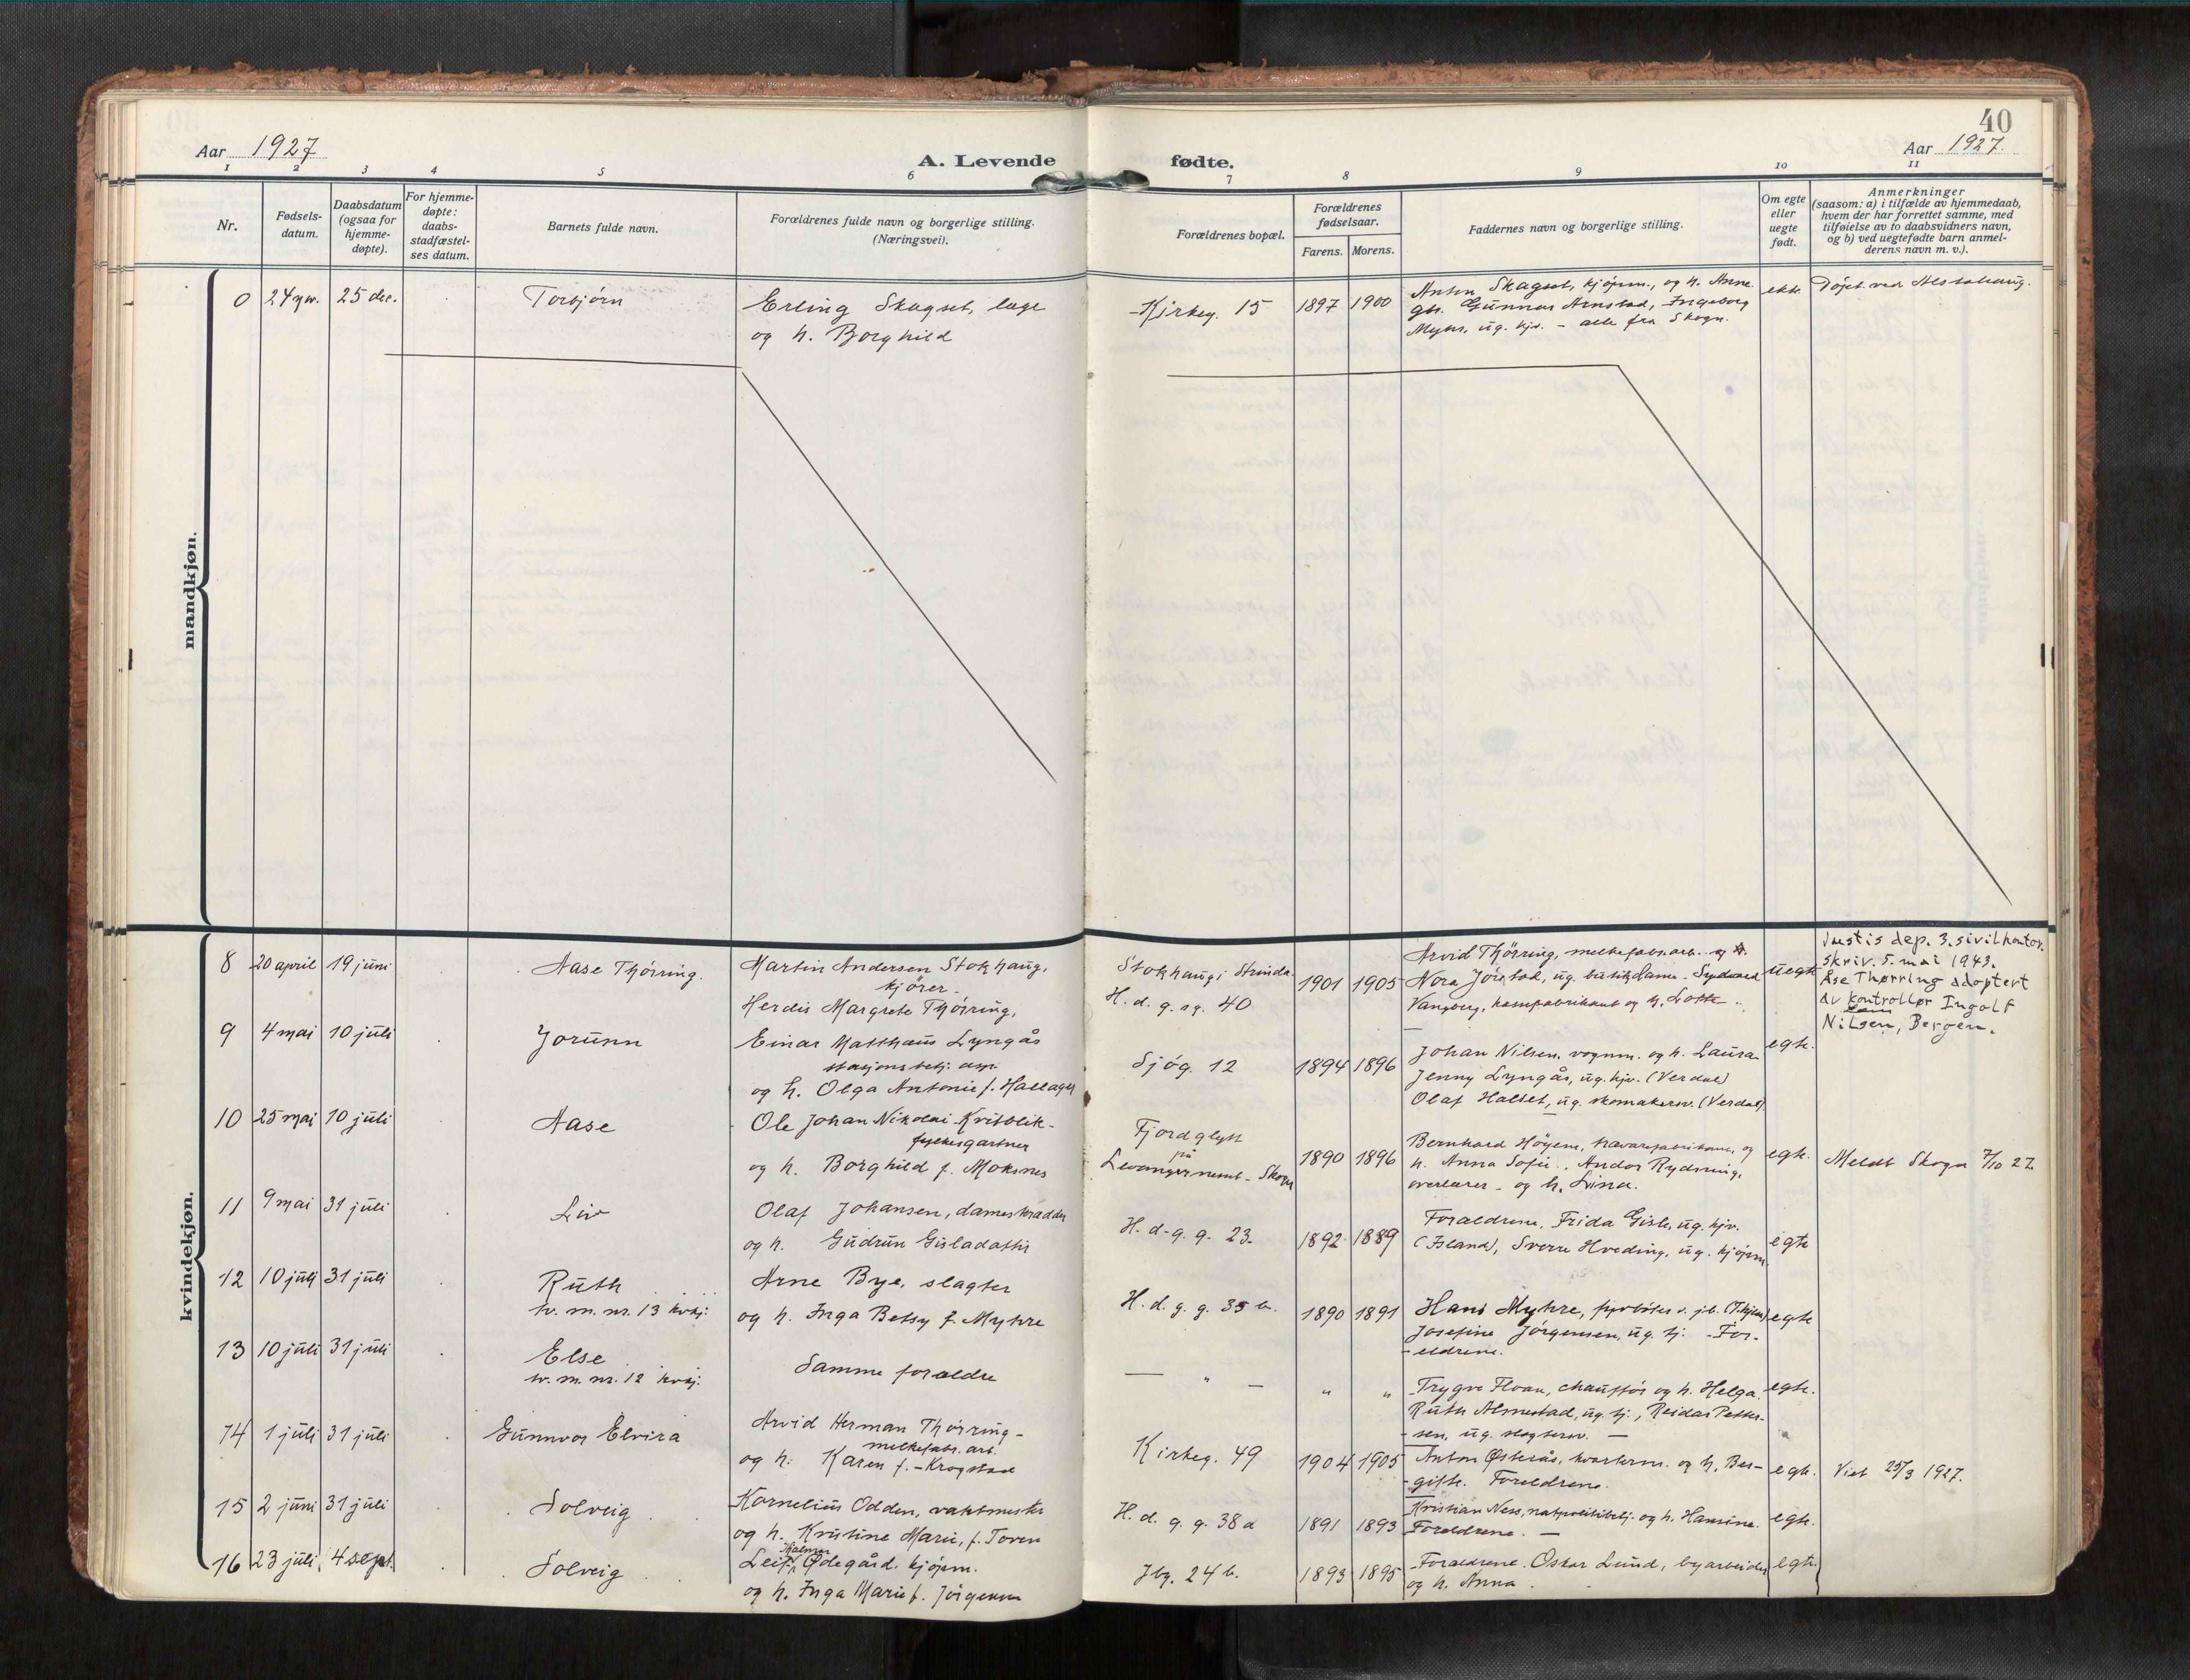 40
Aar 1927
A. Levende fødte.
Aar 1927.
1 2 3 4 5 6 7 8 9 10 11
Nr.
Fødsels-
datum.
Daabsdatum
(ogsaa for
hjemme-
døpte).
For hjemme-
døpte:
daabs-
stadfæstel-
ses datum.
Barnets fulde navn.
Forældrenes fulde navn og borgerlige stilling.
(Næringsvei).
Forældrenes bopæl.
Forældrenes
fødselsaar.
Farens. Morens.
Faddernes navn og borgerlige stilling.
Om egte
eller
uegte
født.
Anmerkninger
(saasom: a) i tilfælde av hjemmedaab,
hvem der har forrettet samme, med
tilføielse av to daabsvidners navn,
og b) ved uegtefødte barn anmel-
derens navn m. v.).
mandkjøn.
0 24 25 dec. Torbjørn
Erling Skagset, læge
og h. Borghild
Kirkeg. 15 1897 1900
Anton Skagset, kjøpm., og h. Anne.
Gunnar Arnstad, Ingeborg
Myhr, ug. kjv. - alle fra Skogn.
ekte. Døpt ved Alstahaug.
kvindekjøn.
8 20 april 19 juni Aase Thörring.
Martin Andersen Stokhaug,
kjører -
Herdis Margrete Thörring,
Stokhaug i Strinda
H. d. g. g. 40
1901 1905
Arvid Thörring, melkefabr.arb. og
Nora Jörstad, ug. butikdame -
Vangberg, kassefabrikant og h. Lotte -
uegte
Justis dep. 3. sivilkontor.
skriv. 5. mai 1943.
Åse Thørring adoptert
av kontrollør Ingolf
Nilsen, Bergen.
9 4 mai 10 juli Jorunn
Einar Matthæus Lyngås
stasjonsbetj. asp.
og h. Olga Antonie f. Hallager
Sjög. 12 1894 1896
Johan Nilsen, vognm. og h. Laura -
Jenny Lyngås, ug. kjv. (Verdal)
Olaf Halset, ug. skomakersv. (Verdal).
egte.
10 25 mai 10 juli Aase
Ole Johan Nikolai Kvitblik -
fylkesgartner
og h. Borghild f. Moksnes
Fjordglytt
på
Levangernesset - Skogn
1890 1896
Bernhard Höyem, og
h. Anna Sofie. Andor Rydning,
overlærer - og h. Lina.
egte. Meldt Skogn 7/10 27.
11 9 mai 31 juli Liv
Olaf Johansen, dameskrædder
og h. Gudrun Gisladottir
H. d. g. g. 23. 1892 1889
Forældrene, Frida Gisle, ug. kjv.
(Island), Sverre Hveding, ug. kjöpm.
egte
12 10 juli 31 juli Ruth
tv. m. nr. 13 kvkj.
Arne Bye, slagter
og h. Inga Betsy f. Myhre
H. d. g. g. 35 b. 1890 1891
Hans Myhre, fyrböter v. jb. (T.hjem)
Josefine Jörgensen, ug. tj. - For-
-eldrene.
egte
13 10 juli 31 juli Else
tv. m. nr. 12 kvkj.
Samme forældre
— " — " "
Trygve Floan, chaufför og h. Helga.
Ruth Almestad, ug. tj., Reidar Petter-
-sen, ug. slagtersv. —
egte.
14 1 juli 31 juli Gunnvor Elvira
Arvid Herman Thörring -
melkefabr. arb.
og h. Karen f. - Krogstad
Kirkeg. 49 1904 1905
Anton Østerås, kvarterm. og h. Ber-
-gitte. Foreldrene.
egte. Viet 25/3 1927.
15 2 juni 31 juli Solveig
Kornelius Odden, vaktmester
og h. Kristine Marie, f. Toven
H. d. g. g. 38 a 1891 1893
Kristian Ness, natpolitibetj. og h. Hansine.
Foreldrene. —
egte.
16 23 juli 4 sept. Solveig
Hjalmar
Leif Ødegård, kjöpm.
og h. Inga Marie f. Jörgensen
Jbg. 24 b. 1893 1895
Forældrene. Oskar Lund, byarbeider
og h. Anna.
egte.